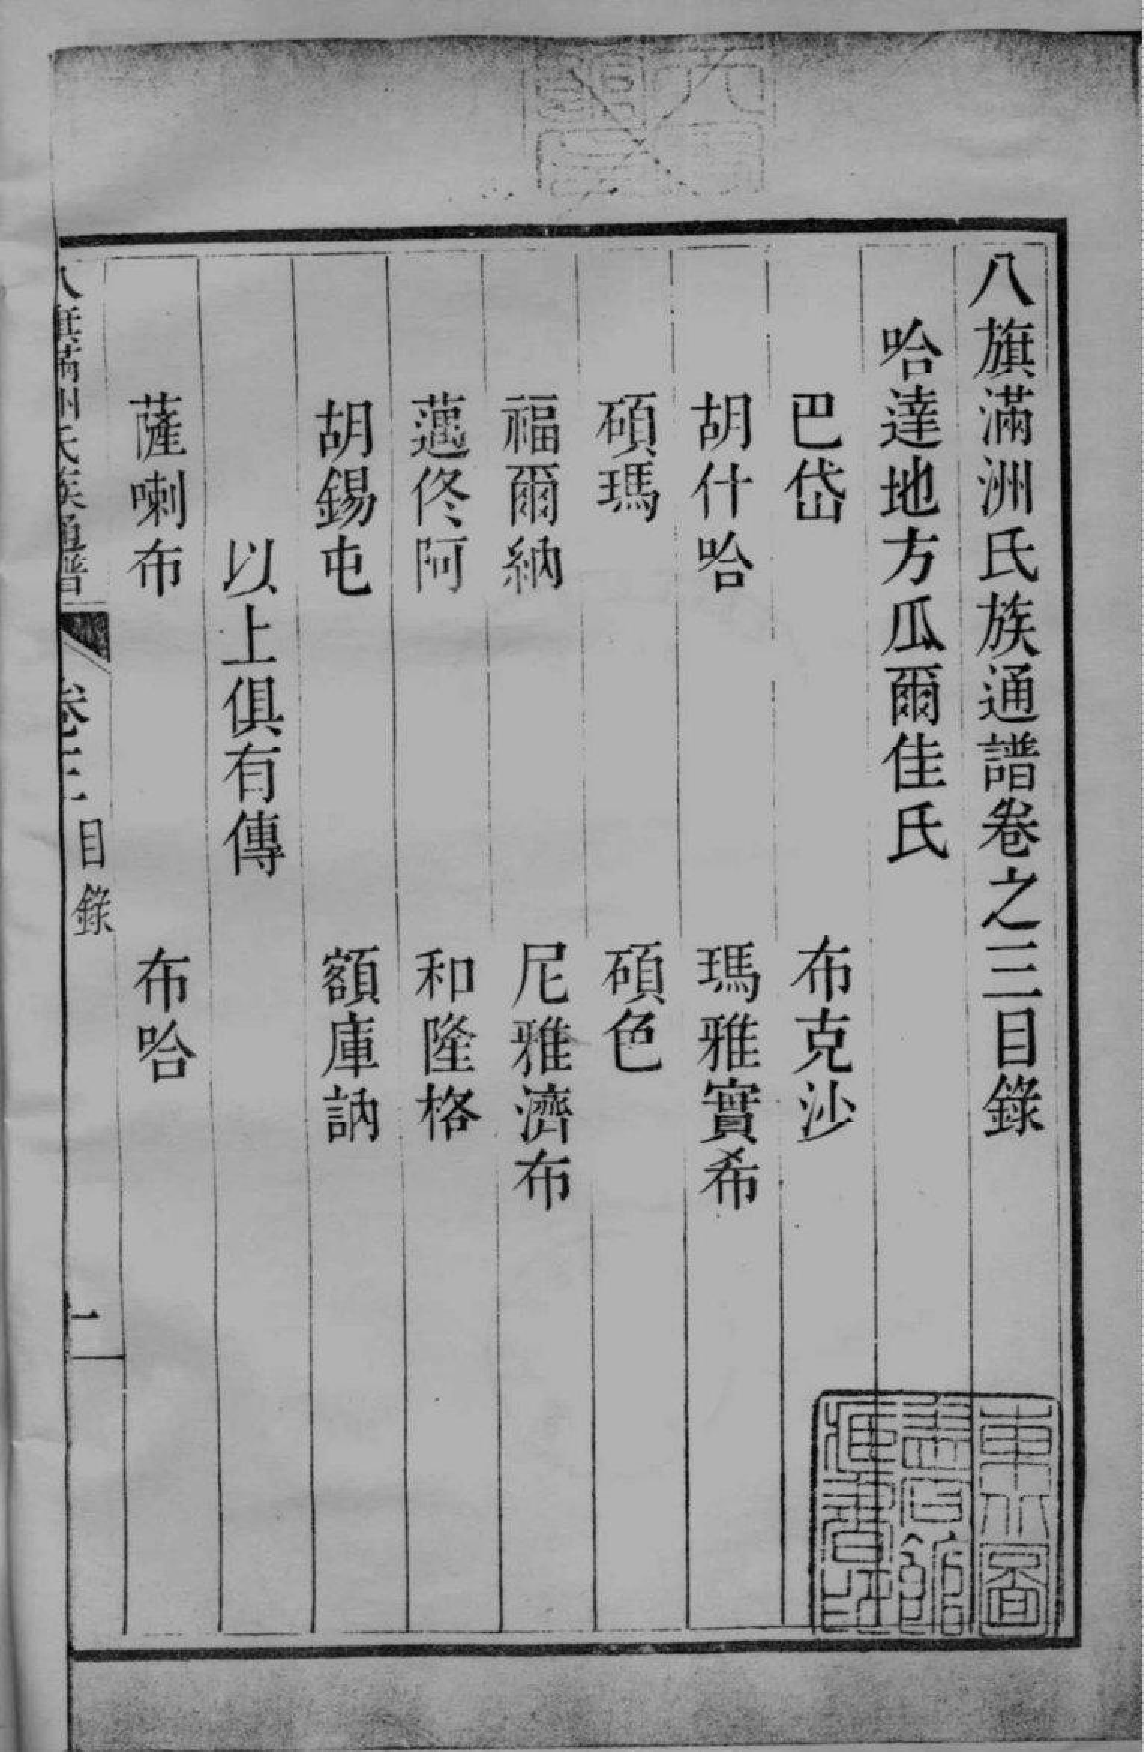 八旗滿洲氏族通譜卷之三目錄
哈達地方瓜爾佳氏
巴岱 布克沙
胡什哈 瑪雅實希
碩瑪 碩色
福爾納 尼雅濟布
薖佟阿 和隆格
胡錫屯 額庫訥
以上俱有傳
薩喇布 布哈
八旗滿洲氏族通譜 卷三 目錄 一
東北圖書館藏書印